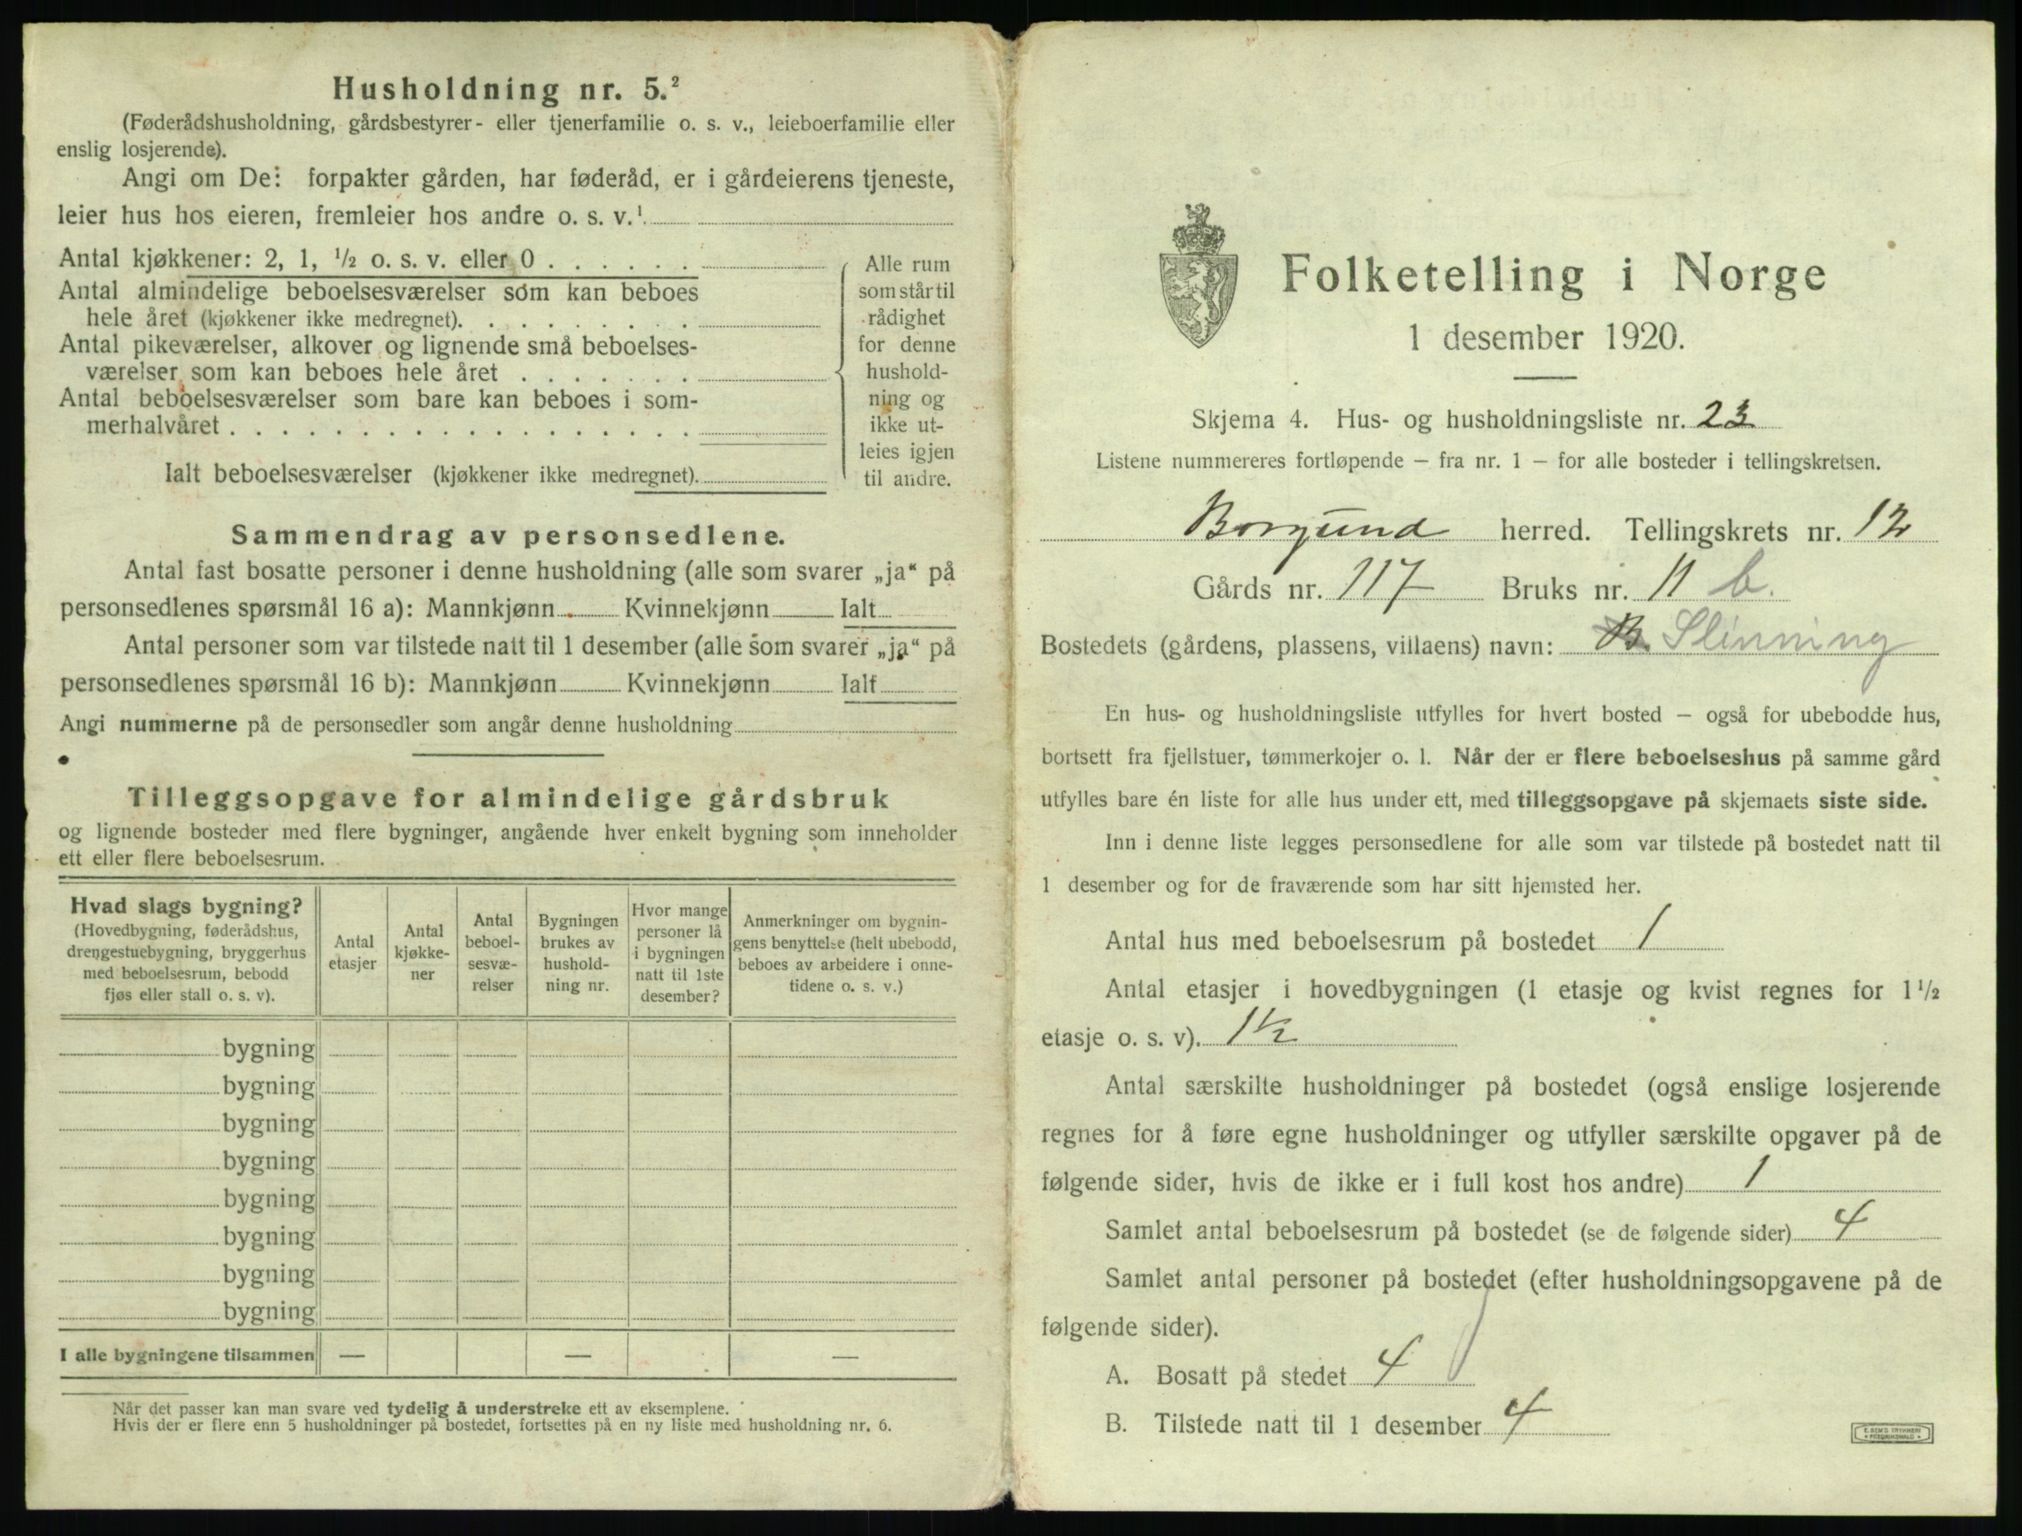 Husholdning nr. 5.²
(Føderådshusholdning, gårdsbestyrer- eller tjenerfamilie o. s. v., leieboerfamilie eller
enslig losjerende).
Angi om De: forpakter gården, har føderåd, er i gårdeierens tjeneste,
leier hus hos eieren, fremleier hos andre o. s. v.¹
Antal kjøkkener: 2, 1, ½ o. s. v. eller 0 . . . . . .
Antal almindelige beboelsesværelser som kan beboes
hele året (kjøkkener ikke medregnet). . . . . . . . .
Antal pikeværelser, alkover og lignende små beboelses-
værelser som kan beboes hele året . . . . . . .
Antal beboelsesværelser som bare kan beboes i som-
merhalvåret . . . . . . . . . . . . . . . . . .
Ialt beboelsesværelser (kjøkkener ikke medregnet).
Alle rum
som står til
rådighet
for denne
hushold-
ning og
ikke ut-
leies igjen
til andre.
Sammendrag av personsedlene.
Antal fast bosatte personer i denne husholdning (alle som svarer „ja“ på
personsedlenes spørsmål 16 a): Mannkjønn Kvinnekjønn Ialt
Antal personer som var tilstede natt til 1 desember (alle som svarer „ja“ på
personsedlenes spørsmål 16 b): Mannkjønn Kvinnekjønn Ialt
Angi nummerne på de personsedler som angår denne husholdning
Tilleggsopgave for almindelige gårdsbruk
og lignende bosteder med flere bygninger, angående hver enkelt bygning som inneholder
ett eller flere beboelsesrum.
Hvad slags bygning?
(Hovedbygning, føderådshus,
drengestuebygning, bryggerhus
med beboelsesrum, bebodd
fjøs eller stall o. s. v).
Antal
etasjer
Antal
kjøkke-
ner
Antal
beboel-
sesvæ-
relser
Bygningen
brukes av
hushold-
ning nr.
Hvor mange
personer lå
i bygningen
natt til 1ste
desember?
Anmerkninger om bygnin-
gens benyttelse (helt ubebodd,
beboes av arbeidere i onne-
tidene o. s. v.)
bygning
bygning
bygning
bygning
bygning
bygning
bygning
bygning
I alle bygningene tilsammen — — —
Når det passer kan man svare ved tydelig å understreke ett av eksemplene.
Hvis der er flere enn 5 husholdninger på bostedet, fortsettes på en ny liste med husholdning nr. 6.
Folketelling i Norge
1 desember 1920.
Skjema 4. Hus- og husholdningsliste nr. 23
Listene nummereres fortløpende — fra nr. 1 — for alle bosteder i tellingskretsen.
Borgund herred. Tellingskrets nr. 12
Gårds nr. 117 Bruks nr. 11 b.
Bostedets (gårdens, plassens, villaens) navn: Slinning
En hus- og husholdningsliste utfylles for hvert bosted — også for ubebodde hus,
bortsett fra fjellstuer, tømmerkojer o. l. Når der er flere beboelseshus på samme gård
utfylles bare én liste for alle hus under ett, med tilleggsopgave på skjemaets siste side.
Inn i denne liste legges personsedlene for alle som var tilstede på bostedet natt til
1 desember og for de fraværende som har sitt hjemsted her.
Antal hus med beboelsesrum på bostedet 1
Antal etasjer i hovedbygningen (1 etasje og kvist regnes for 1½
etasje o. s. v). 1½
Antal særskilte husholdninger på bostedet (også enslige losjerende
regnes for å føre egne husholdninger og utfyller særskilte opgaver på de
følgende sider, hvis de ikke er i full kost hos andre) 1
Samlet antal beboelsesrum på bostedet (se de følgende sider) 4
Samlet antal personer på bostedet (efter husholdningsopgavene på de
følgende sider).
A. Bosatt på stedet 4
B. Tilstede natt til 1 desember 4
E. SEM'S TRYKKERI
FREDRIKSHALD